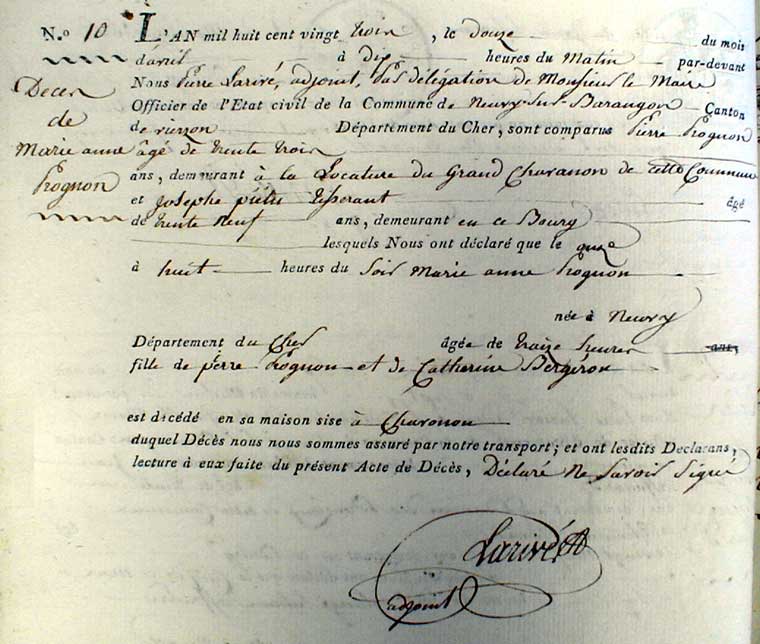 N.o 10
L'AN mil huit cent vingt trois, le douze du mois
d'avril à dix heures du Matin par-devant
Nous Pierre Larivé, adjoint, délégation de Monsieur le Maire
Officier de l'Etat civil de la Commune de Neuvy Sur Barangon Canton
de vierzon Département du Cher, sont comparus Pierre Rognon
âgé de trente trois
ans, demeurant à la Locature du Grand Chavanon de cette Commune
et Josephe tisserant âgé
de trente neuf ans, demeurant en ce Bourg
lesquels Nous ont déclaré que le onze
à huit heures du Soir Marie anne Rognon
née à Neuvy
Département du Cher âgée de treize heures ans,
fille de pierre Rognon et de Catherine Bergeron
est décédé en sa maison sise à Chavonon
duquel Décès nous nous sommes assuré par notre transport; et ont lesdits Declarans,
lecture à eux faite du présent Acte de Décès, Déclaré Ne Savoir Signé
Larivé
adjoint
Deces
de
Marie anne
Rognon